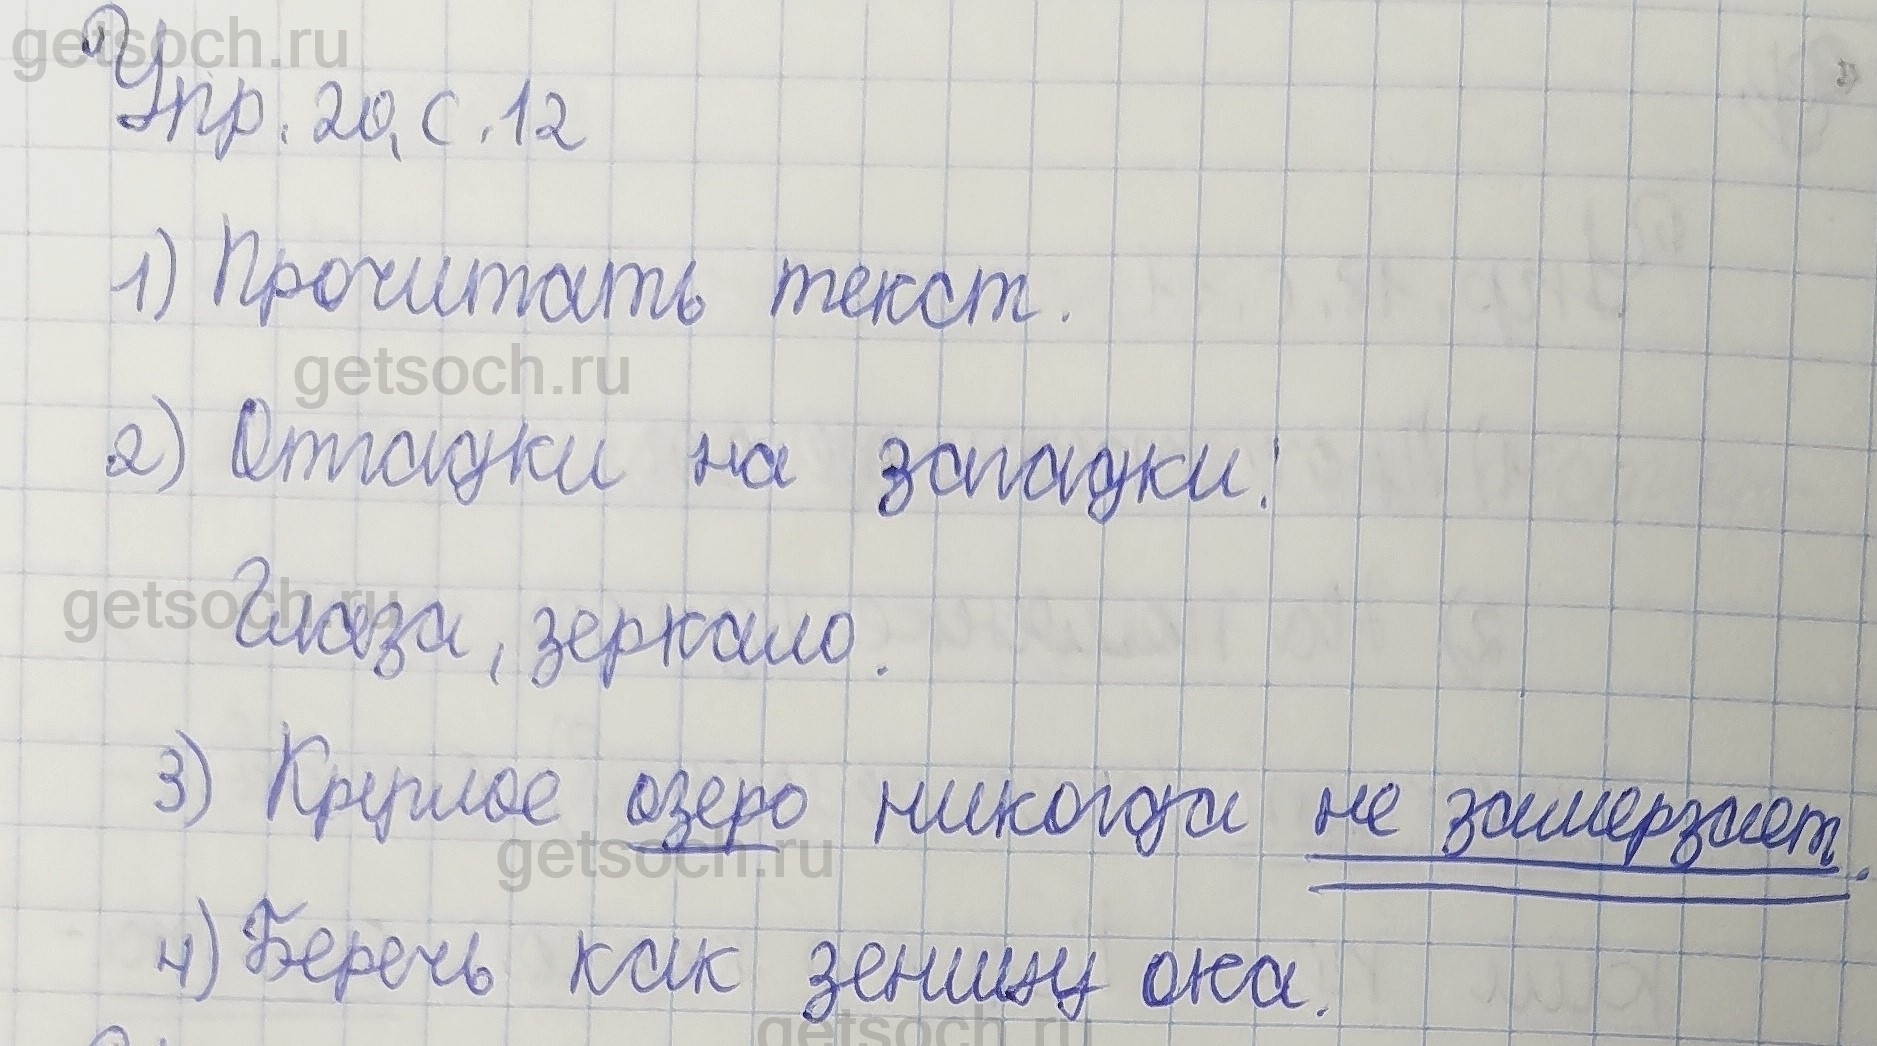 getsoch.ru
Упр. 20, с. 12
1) Прочитать текст.
getsoch.ru
2) Отгадки на загадки:
getsoch.ru
Глаза, зеркало.
3) Круглое озеро никогда не замерзает.
getsoch.ru
4) Беречь как зеницу ока.
getsoch.ru